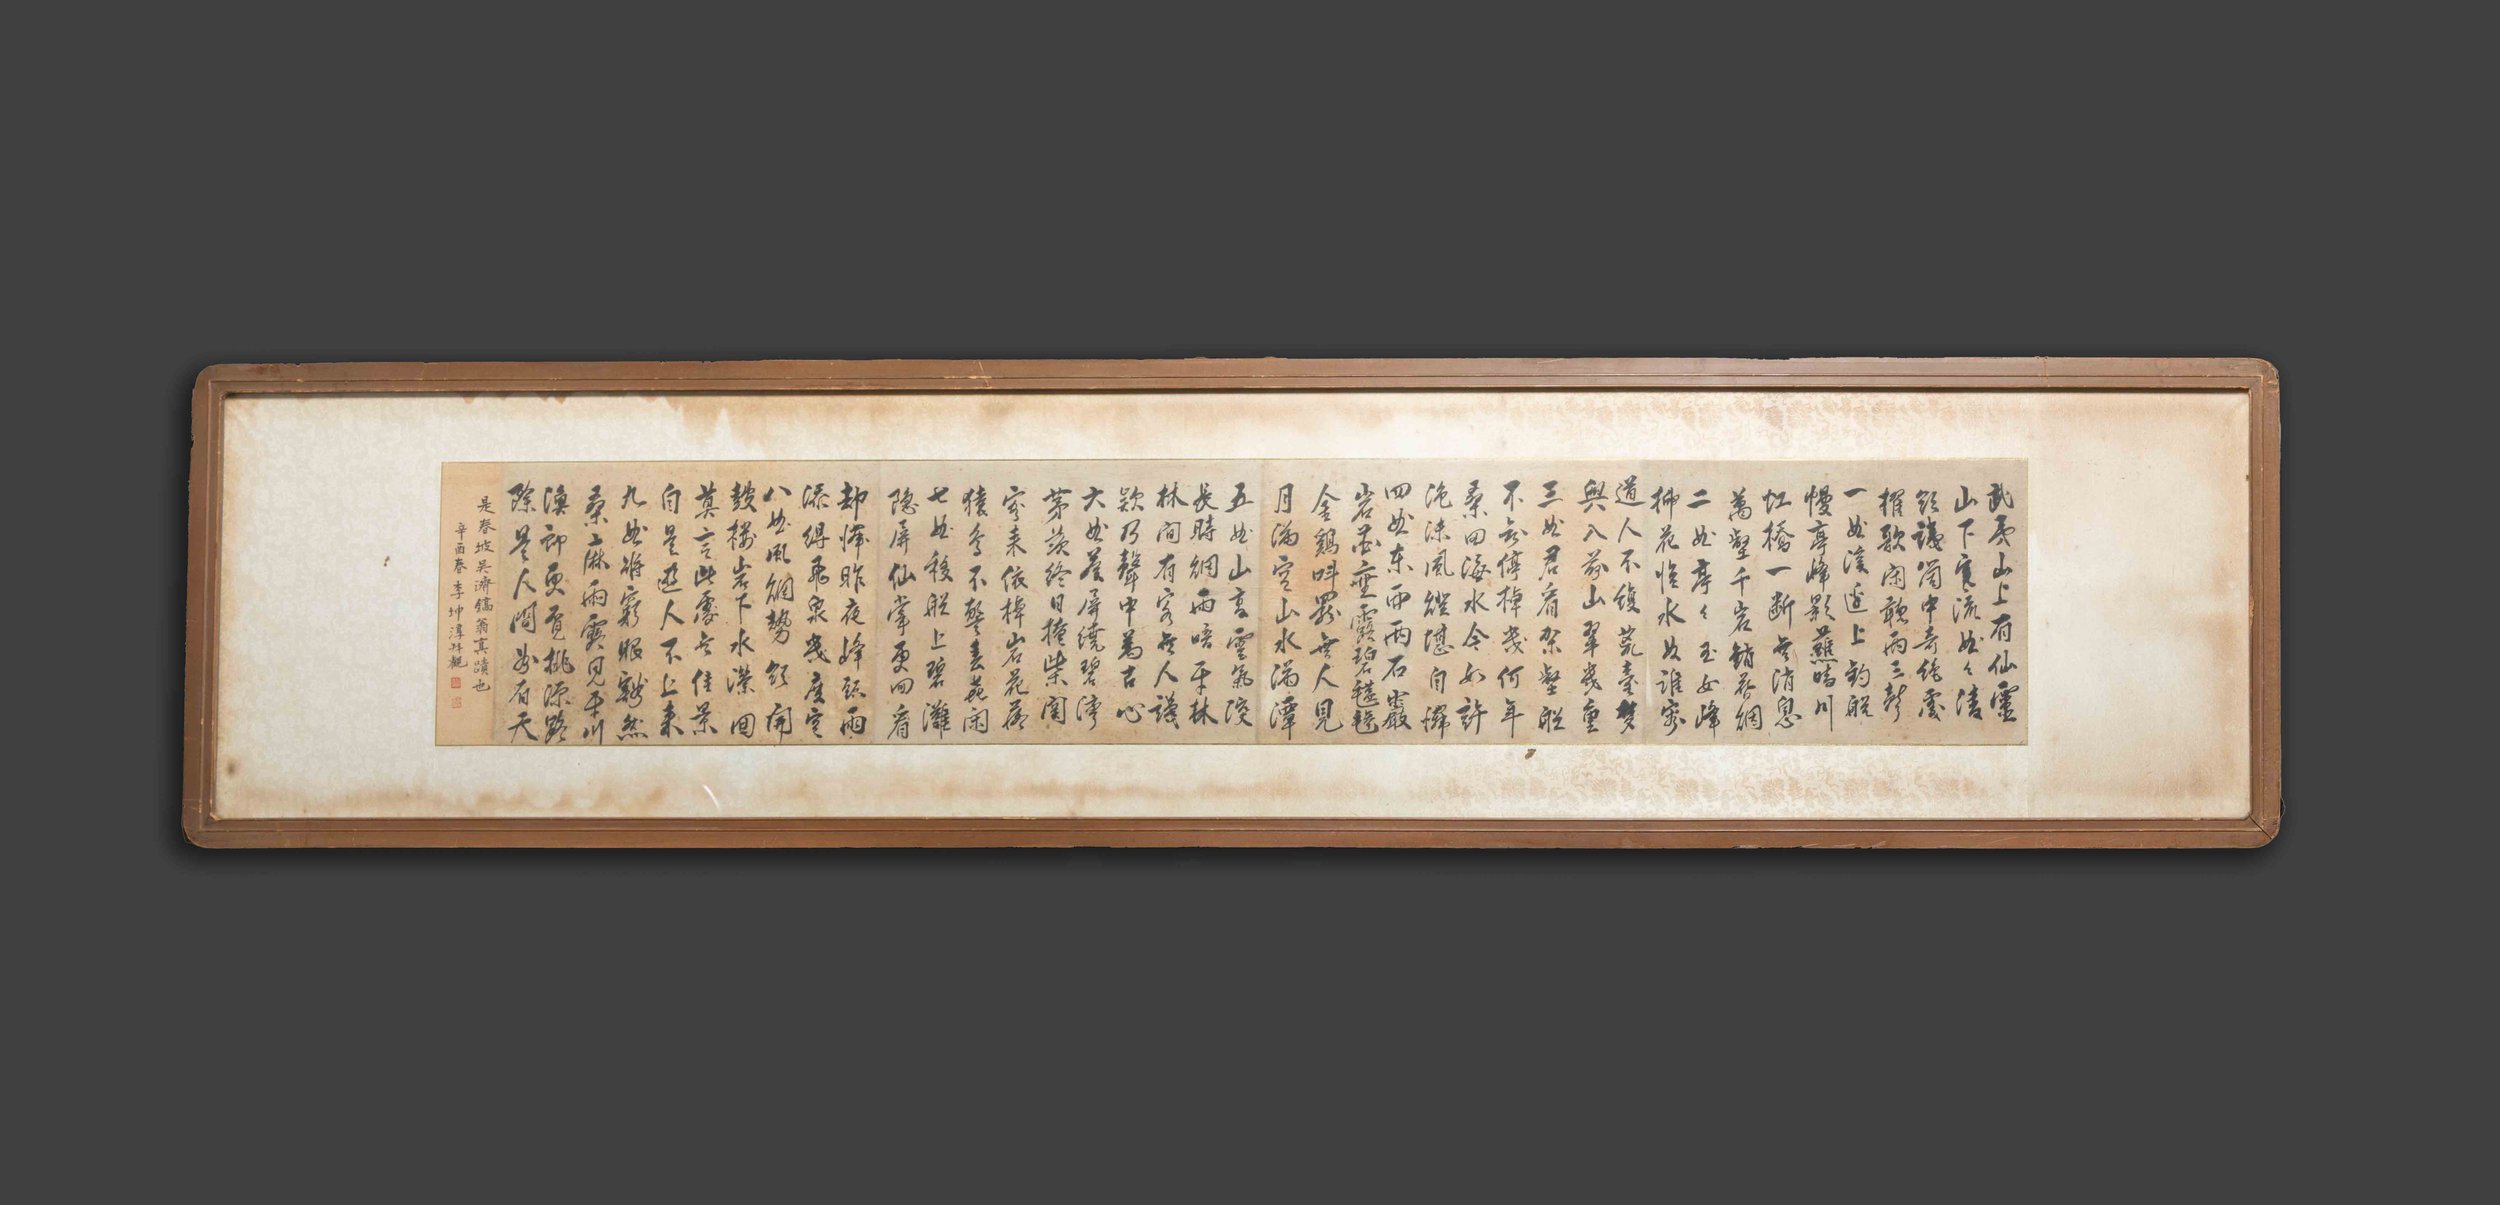 武夷山上有仙靈
山下寒流曲々淸
欲識箇中奇絶處
櫂歌閑聽兩三聲
一曲溪邊上釣船
幔亭峰影蘸晴川
虹橋一斷無消息
萬壑千岩鎖暮烟
二曲亭々玉女峰
揷花臨水爲誰容
道人不復荒臺夢
興入前山翠幾重
三曲君看架壑船
不知停棹幾何年
桑田海水今如許
泡沫風燈堪自憐
四曲東西兩石巖
岩花垂露碧㲯毿
金鷄叫罷無人見
月滿空山水滿潭
五曲山高雲氣深
長時烟雨暗平林
林間有客無人識
欸乃聲中萬古心
六曲蒼屛繞碧灣
茅茨終日掩柴關
客來依棹岩花落
猿鳥不驚春意閑
七曲移船上碧灘
隱屛仙掌更回看
却憐昨夜峰頭雨
添得飛泉幾度寒
八曲風烟勢欲開
鼓樓岩下水濚回
莫言此處無佳景
自是遊人不上來
九曲將窮眼豁然
桑麻雨露見平川
漁郞更覓桃源路
除是人間別有天
是春坡吳濟鎬翁真蹟也
辛酉春 李坤淳拜觀